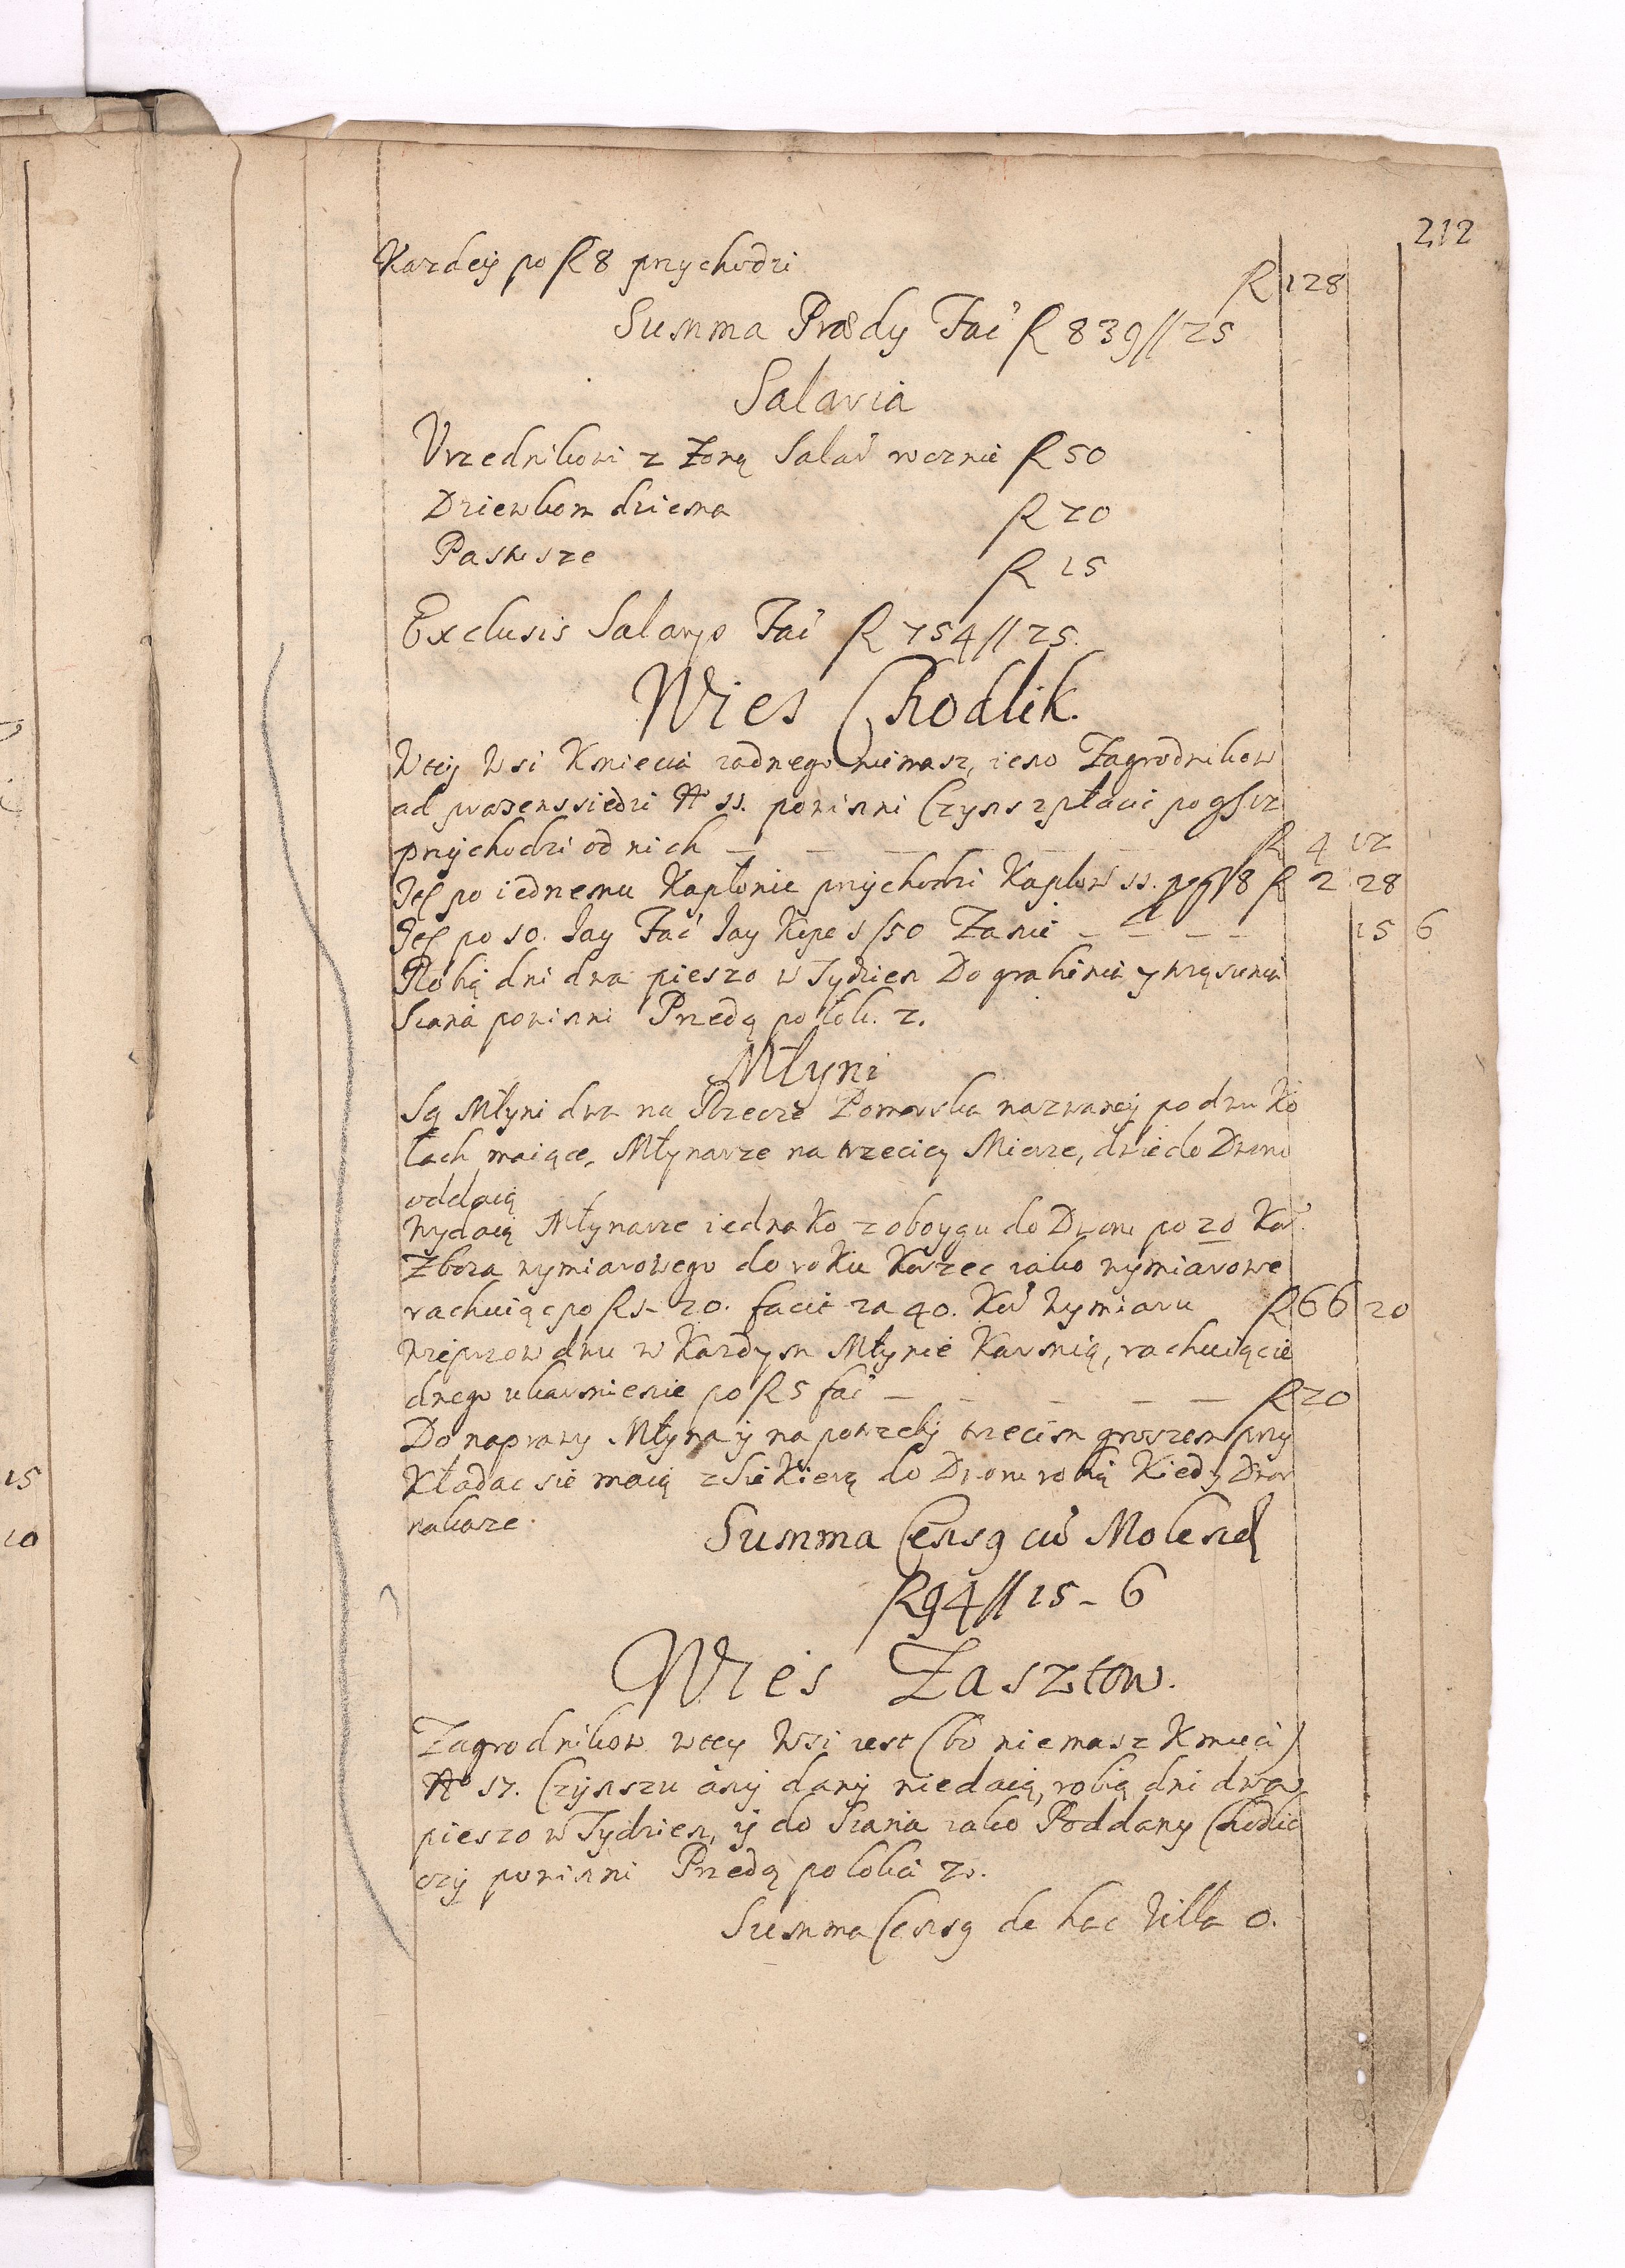 212
Kazdeÿ po fl 8 przychodzi fl 128
Summa Prædy Fac fl 839//25
Salaria
Vrzednikowi z Zoną Salar rocznie fl 50
Dziewkom dwiema fl 20
Pastusze fl 15
Exclusis Salaryo Fac fl 754//25.
Wies Chodlik.
W teÿ Wsi Kmiecia zadnego niemasz, ieno Zagrodnikow
ad præsens siedzi No 11. powinni Czynsz płacić po gr 12
przychodzi od nich — — — — — fl 4 12
Jtẽ po iednemu Kapłonie przychodzi Kapłon 11. po gr 8 fl 2 28
Jtẽ po 10. Jay Fac Jay Kope 1/50 Zanie — — — — 15 6
Robią dni dwa pieszo w Tydzien Do grabienia y wiązania
Siana powinni Przedą po łok. 2.
Młyni
Są Młyni dwa na Rzecze Pomorska nazwaneÿ po dwu Ko
łach maiące, Młynarze na trzeciey Mierze, dwie do Dworu
oddaią
Wydaią Młynarze iednako z oboygu do Dworu po 20 Kor.
Zboza wymiarowego do roku Korzec iako wymiarowe
rachuiąc po fl 1 - 20. facit za 40. Kor Wymiaru fl 66 20
Wieprzow dwu w Kazdym Młynie Karmią, rachuiąc ie
dnego ukarmienie po fl 5 fac — — — — — fl 20
Do naprawy Młyna ÿ na potrzeby trzecim groszem przy
kładac sie maią z Siekierą do Dworu robią Kiedy Dwor
rokaze.
Summa Censq cu Molend
fl 94//15 - 6
Wies Zasztow.
Zagrodnikow w tey Wsi iest (bo niemasz Kmieci)
No 17. Czynszu ani dany niedaią, robią dni dwa
pieszo w Tydzien, ÿ do Siana iako Poddany Chodlic
czÿ powinni Przedą po łokci 2.
Summa Censq de hac Villa 0.
15
10